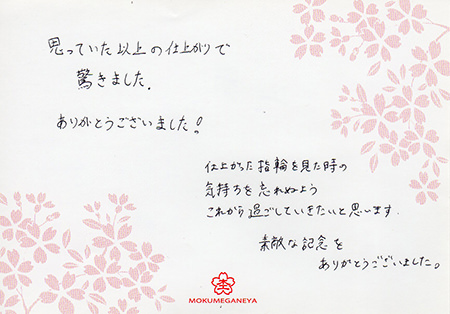 思っていた以上の仕上がりで
驚きました.
ありがとうございました!
仕上がった指輪を見た時の
気持ちを忘れぬよう
これから過ごしていきたいと思います.
素敵な記念を
ありがとうございました。
MOKUMEGANEYA